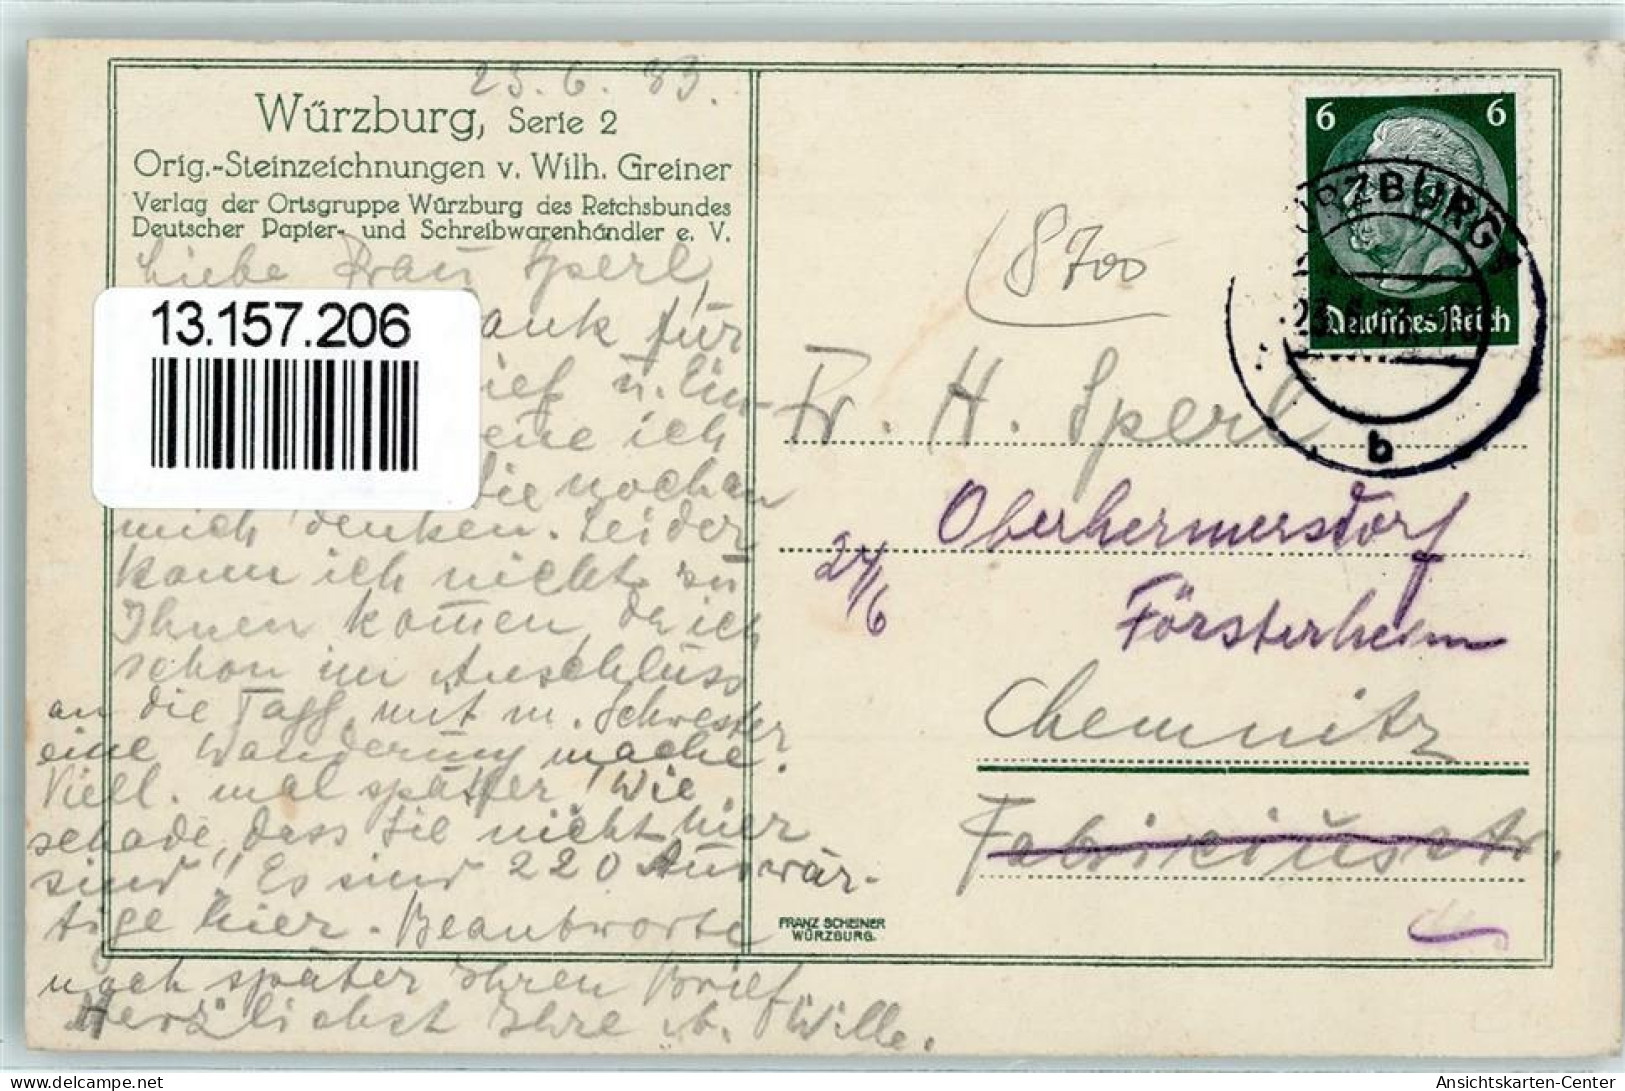 23. 6. 33.
Würzburg, Serie 2
Orig.-Steinzeichnungen v. Wilh. Greiner
Verlag der Ortsgruppe Würzburg des Reichsbundes
Deutscher Papier- und Schreibwarenhändler e. V.
Liebe Frau Sperl,
ank für
ief u. Ein-
ich
Sie noch an
mich denken. Leider
kann ich nicht zu
Ihnen kom̄en, da ich
schon im Anschluss
an die Tagg. mit m. Schwester
eine Wanderung mache.
Viell. mal später! Wie
schade, dass Sie nicht hier
sind! Es sind 220 Auswär-
tige hier. Beantworte
noch später Ihren Brief.
Herzlichst Ihre Wille.
13.157.206
6 6
Deutsches Reich
WÜRZBURG
b
8700
Fr. H. Sperl
Oberhermersdorf
24/6
Försterheim
Chemnitz
Fabriciusstr.
FRANZ SCHEINER
WÜRZBURG.
www.oldthing.de
Ansichtskarten-Center